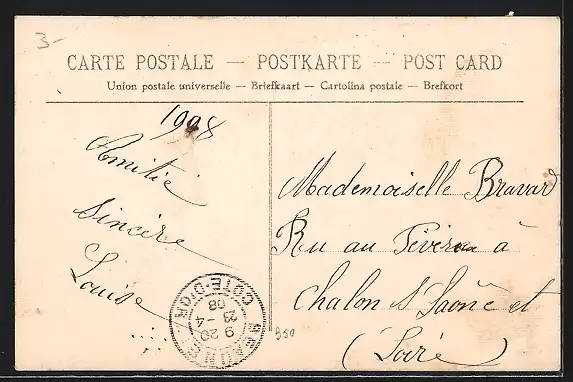 3-
CARTE POSTALE — POSTKARTE — POST CARD
Union postale universelle — Briefkaart — Cartolina postale — Brefkort
1908
Amitié
Sincère
Louise
Mademoiselle Bravard
Ru au à
Chalon S Saône et
(Loire)
BEAUNE
COTE-D'OR
9 20
23 - 4
08
850